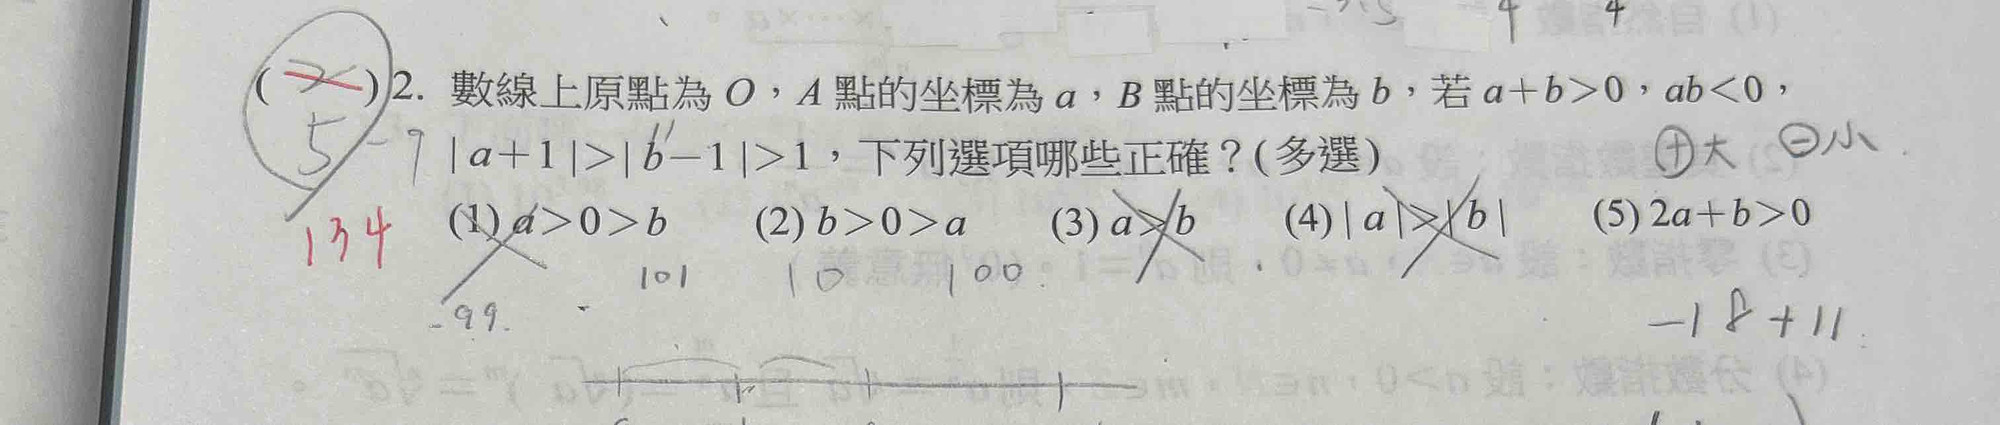 2. 數線上原點為 O，A 點的坐標為 a，B 點的坐標為 b，若 a+b>0，ab<0，
|a+1|>|b-1|>1，下列選項哪些正確？(多選)
⊕大 ⊖小
5
-9
11
(1) a>0>b (2) b>0>a (3) a>b (4) |a|>|b| (5) 2a+b>0
134
101 10 100
-99.
-18+11